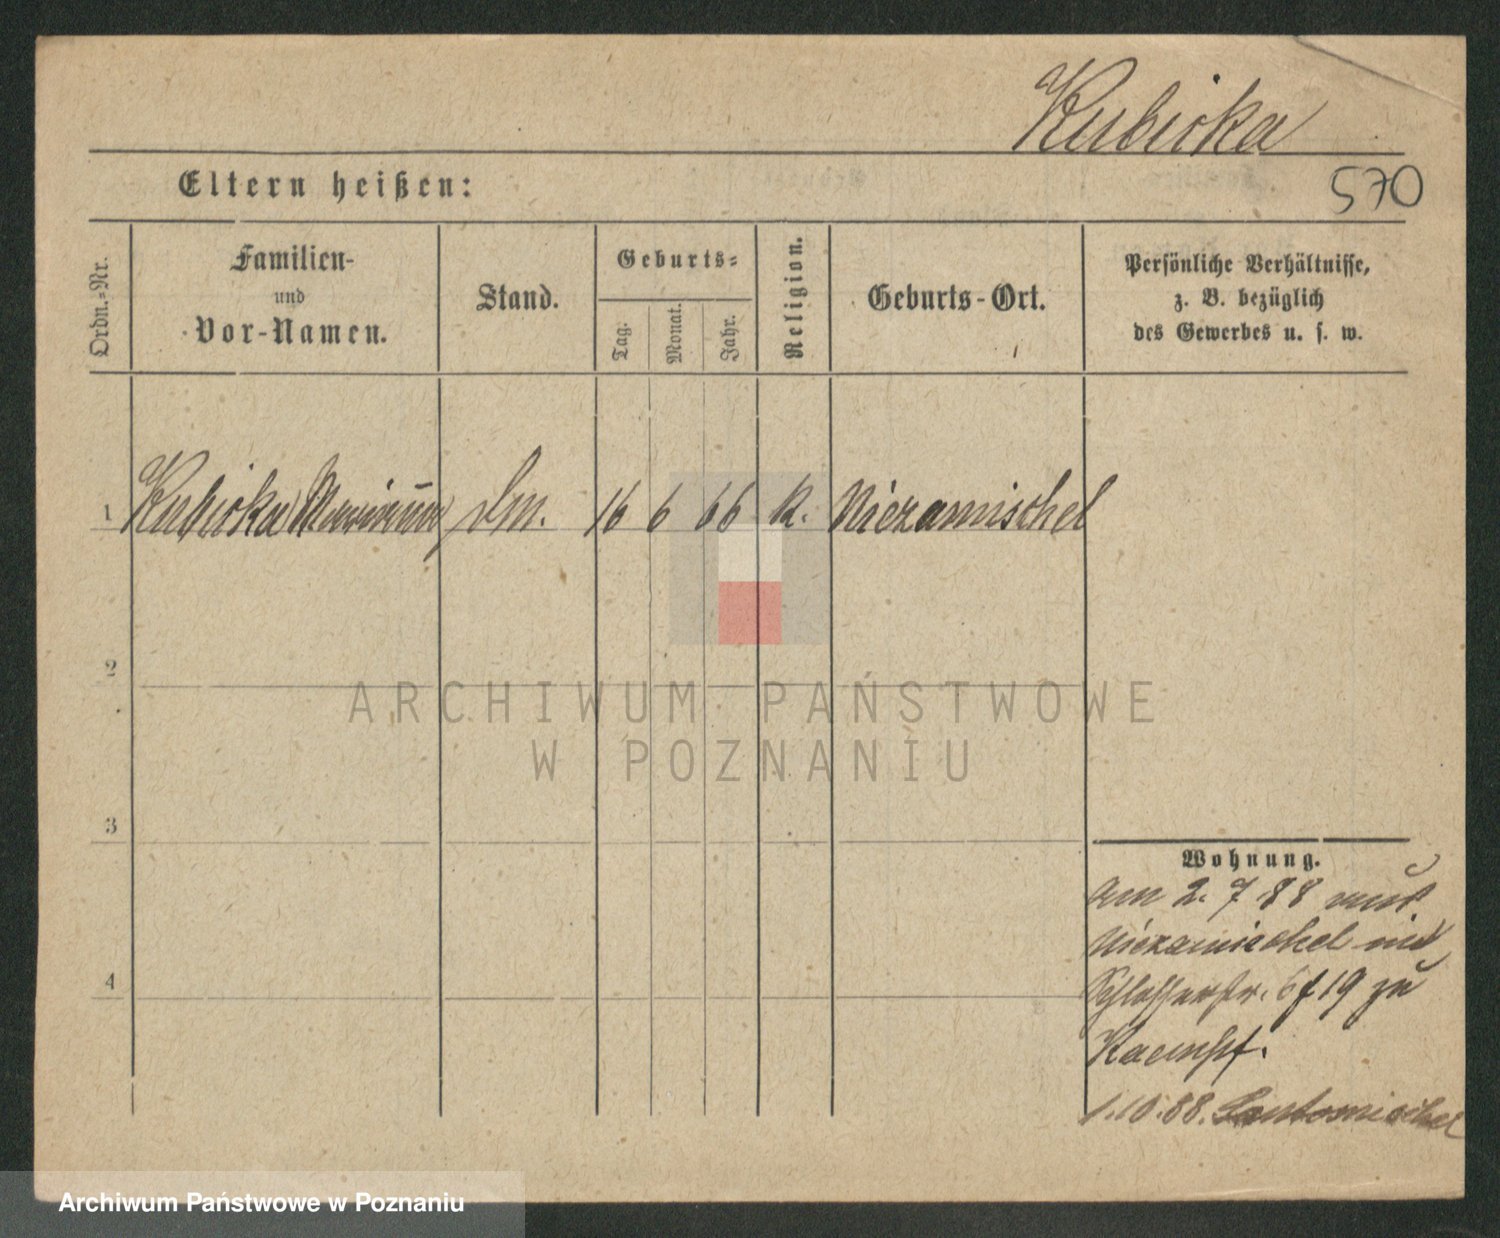 Kubicka
Eltern heißen:
570
Ordn.-Nr.
Familien-
und
Vor-Namen.
Stand.
Geburts-
Tag.
Monat.
Jahr.
Religion.
Geburts-Ort.
Persönliche Verhältnisse,
z. B. bezüglich
des Gewerbes u. s. w.
1 Kubicka 16 6 66 k. Niezamischel
2
3
4
Wohnung.
am 2. 7 88 aus
Niezamischel
Schlosserstr. 6 f 19 zu
Kaempf.
1.10.88. Santomischel
ARCHIWUM PAŃSTWOWE
W POZNANIU
Archiwum Państwowe w Poznaniu